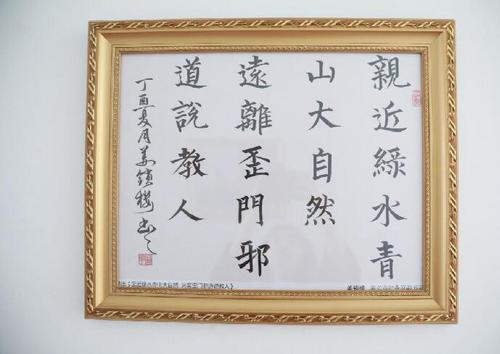 親近綠水青
山大自然
遠離歪門邪
道說教人
丁酉夏月姜鎖樑書